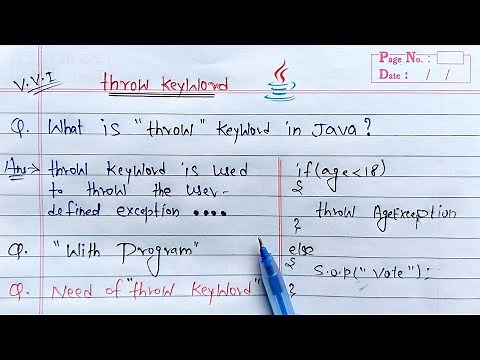 Page No. :
Date : / /
V.V.I
throw keyword
Q. What is "throw" keyword in Java?
Ans-> throw keyword is used
to throw the user-
defined exception ....
Q. "With Program"
Q. Need of "throw keyword"
if(age<18)
{
throw AgeException
}
else
{
S.o.p("Vote");
}